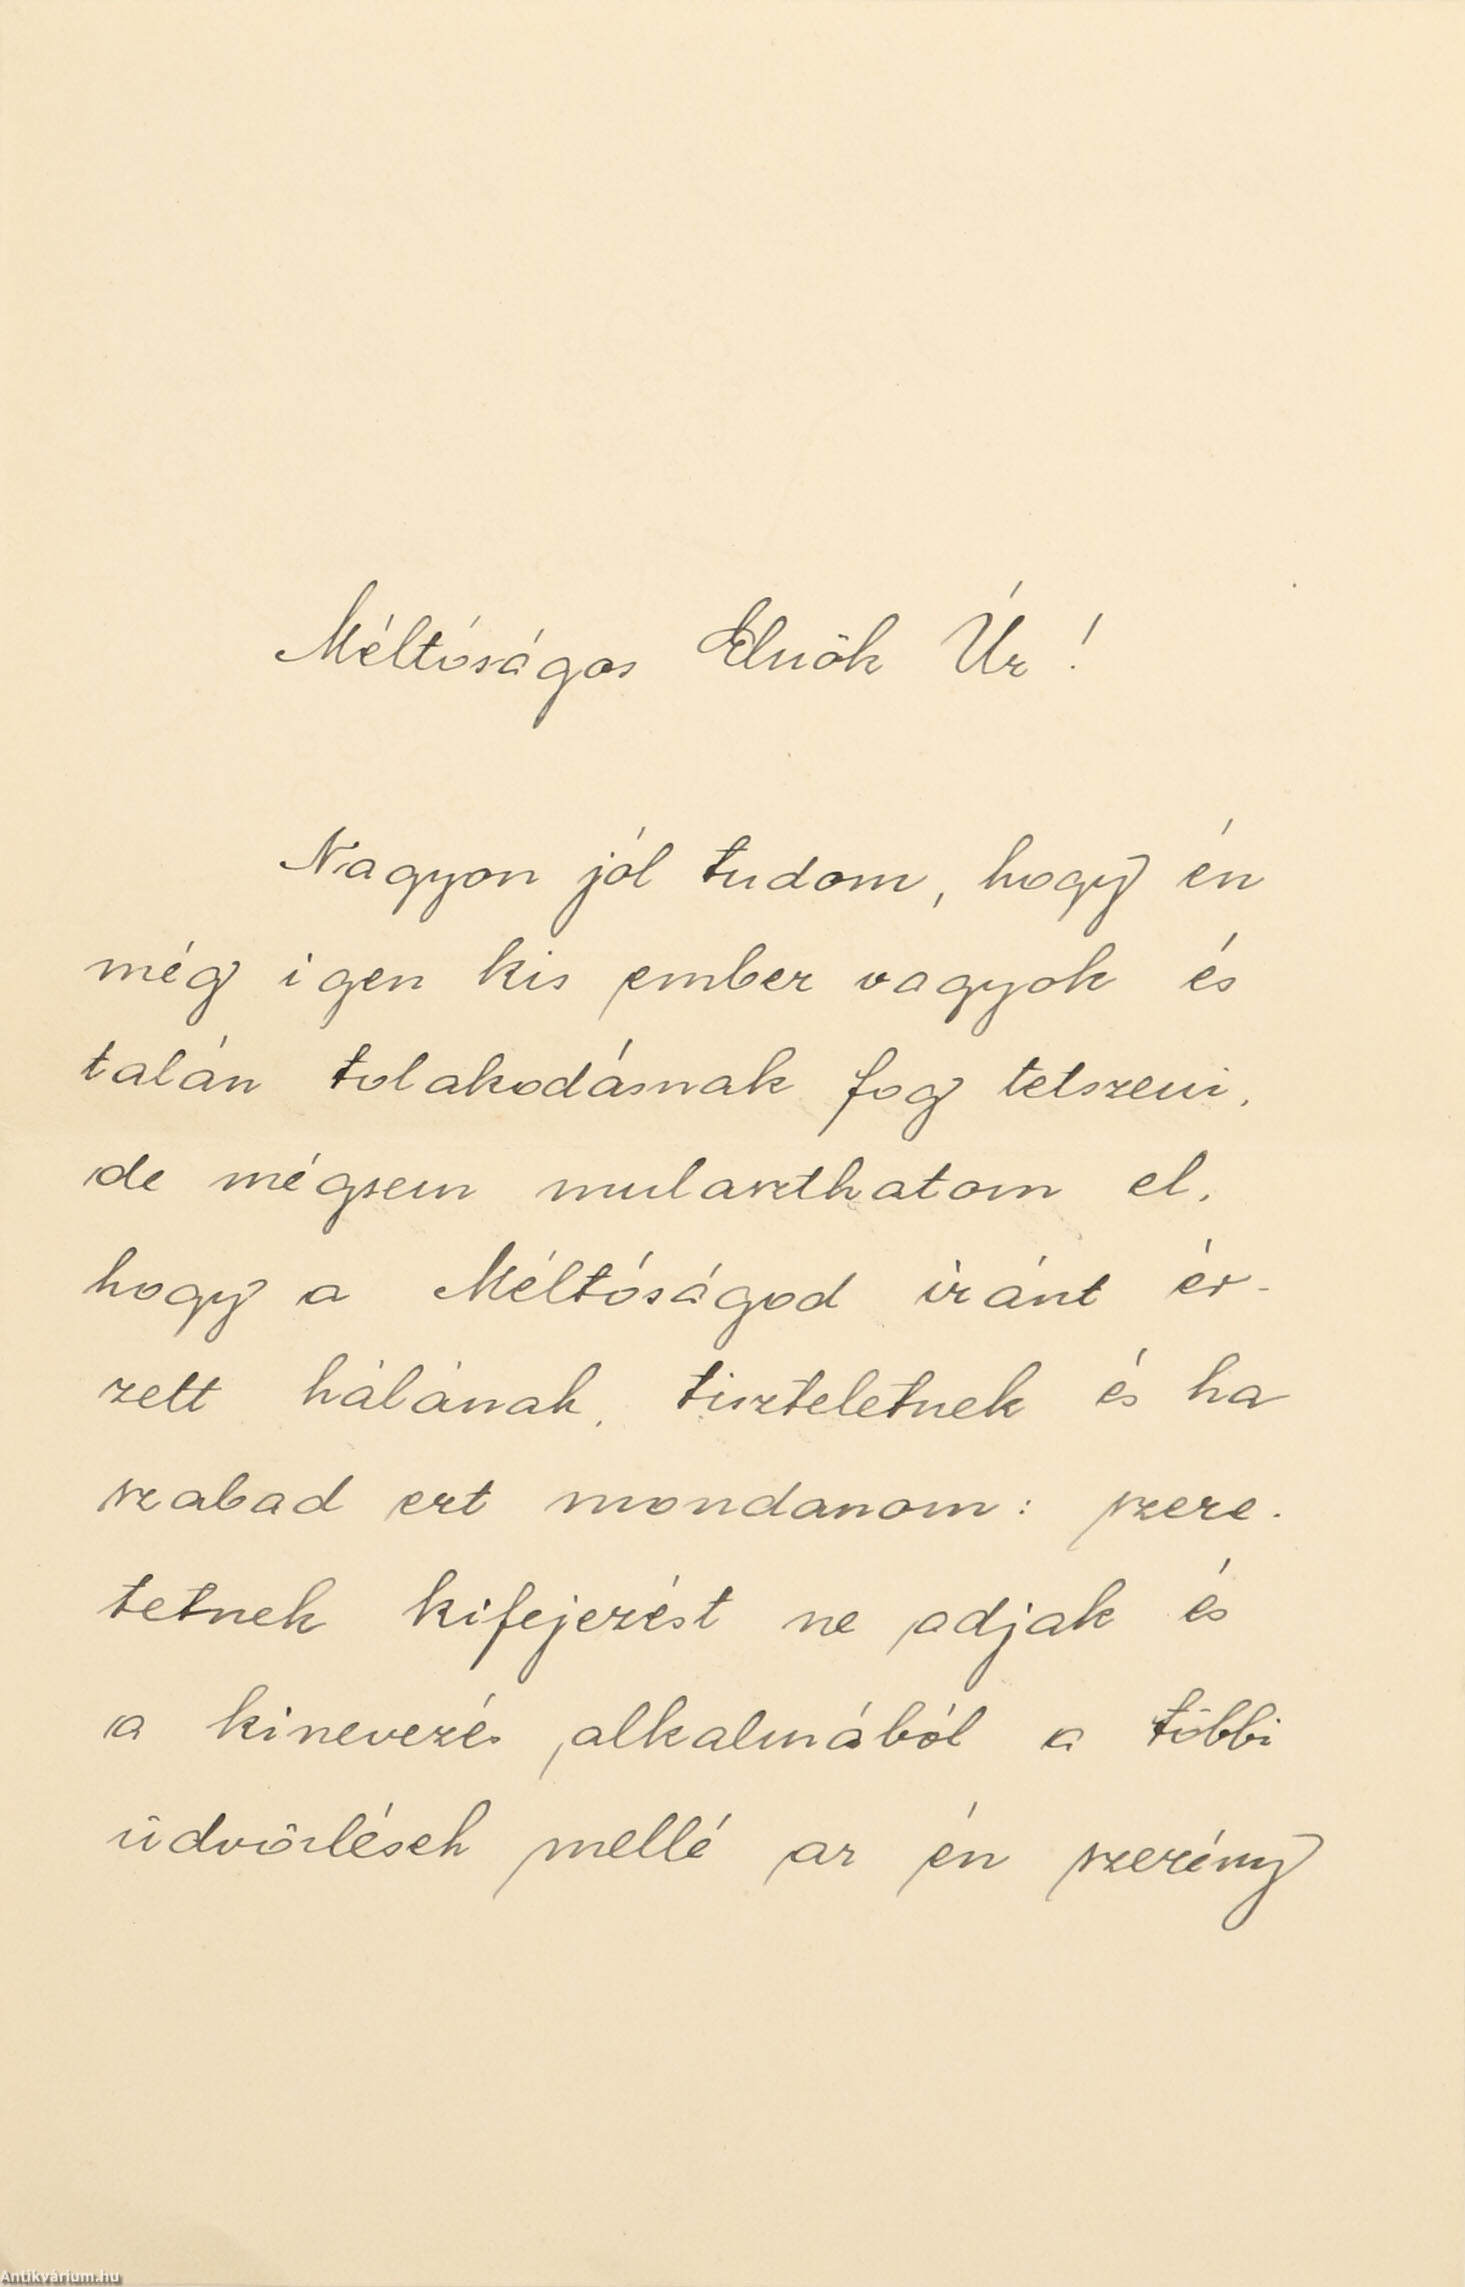 Méltóságos Elnök Úr!
Nagyon jól tudom, hogy én
még igen kis ember vagyok és
talán tolakodásnak fog tetszeni,
de mégsem mulaszthatom el,
hogy a Méltóságod iránt ér-
zett hálának, tiszteletnek és ha
szabad ezt mondanom: szere-
tetnek kifejezést ne adjak és
a kinevezés alkalmából a többi
üdvözlések mellé az én szerény
Antikvárium.hu